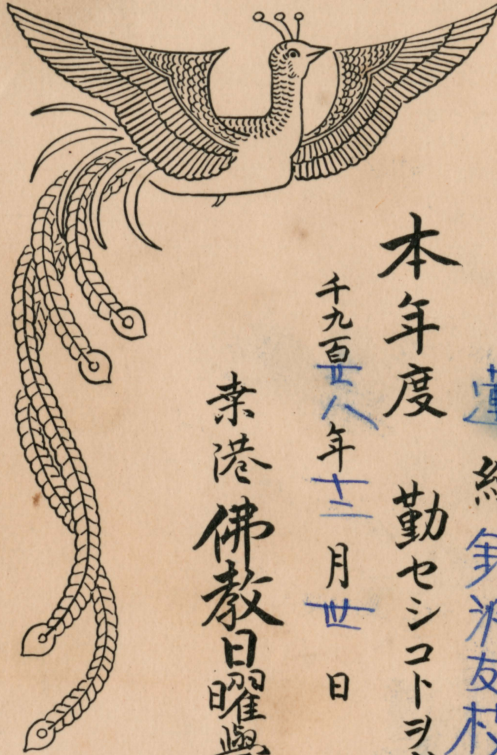 組
本年度 勤セシコトヲ
千九百廿八年十二月廿日
桒港佛教日曜學